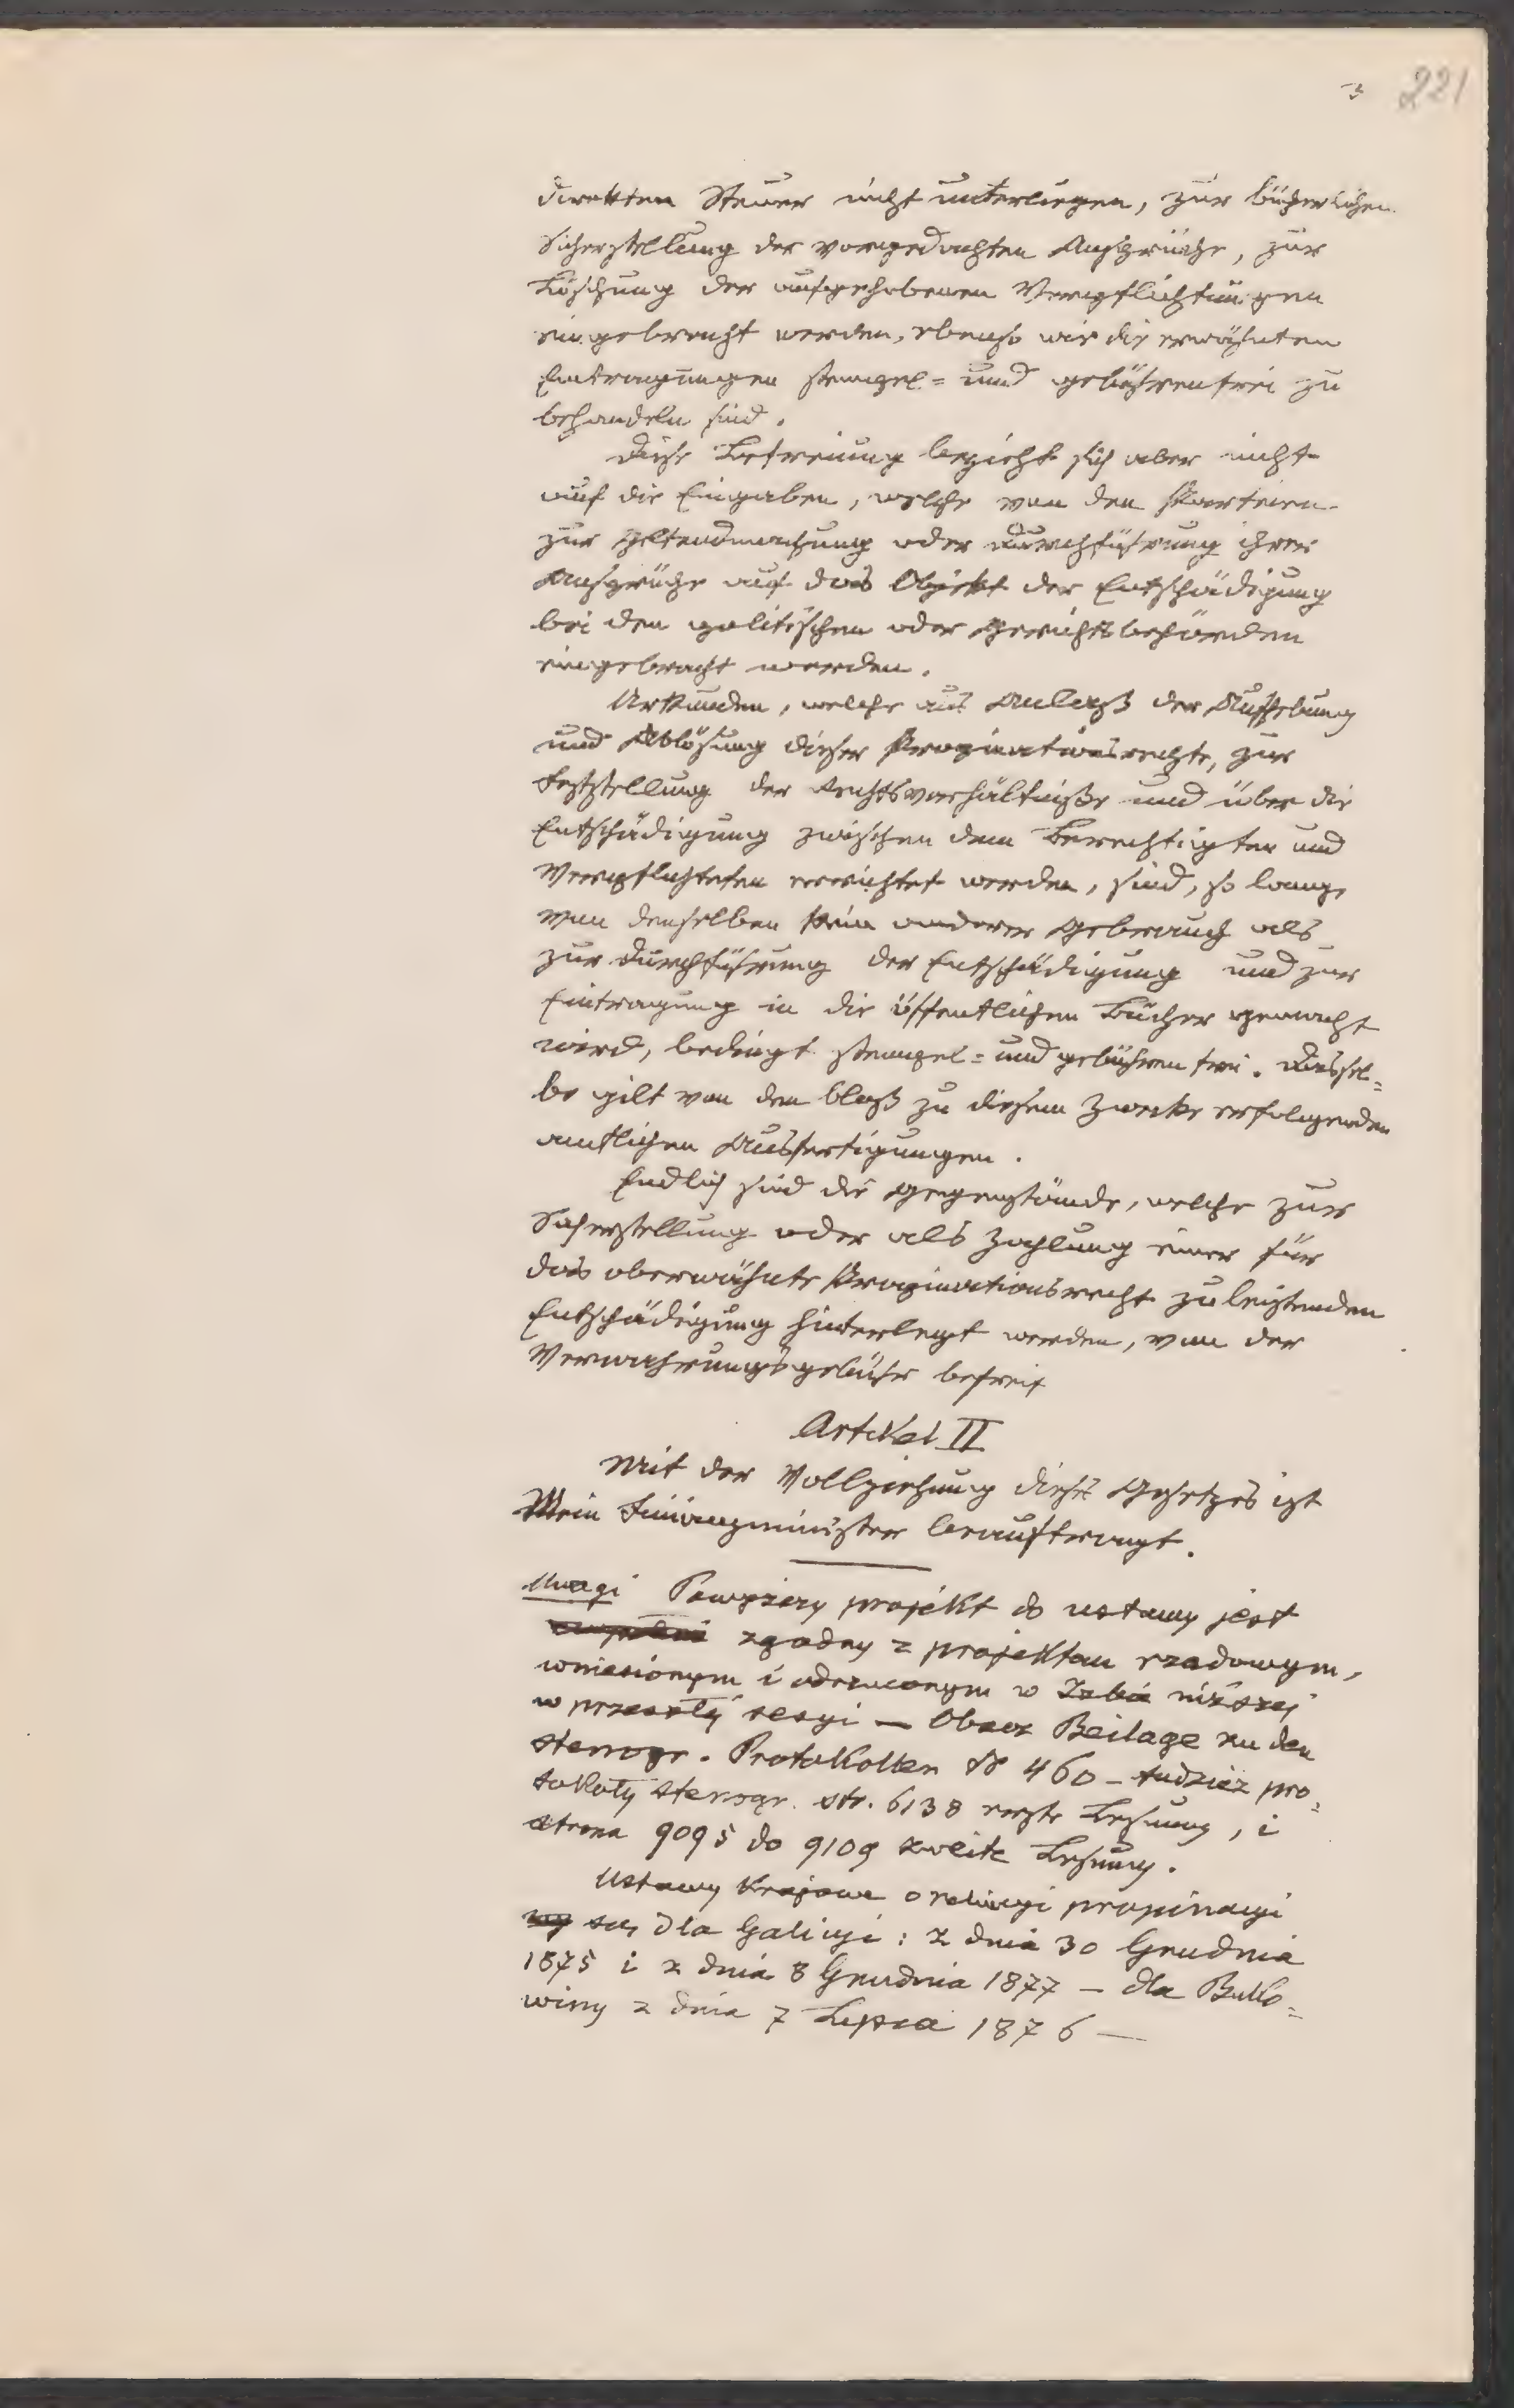 3 221
direkten Steuer nicht unterliegen, zur bücherlichen
Sicherstellung der vorgedachten Ansprüche, zur
Löschung der aufgehobenen Verpflichtungen
eingebracht werden, ebenso wie die erwähnten
Eintragungen stempel= und gebührenfrei zu
behandeln sind.
Diese Befreiung bezieht sich aber nicht
auf die Eingaben, welche von den Parteien
zur Geltendmachung oder Durchführung ihrer
Ansprüche auf das Objekt der Entschädigung
bei den politischen oder Gerichtsbehörden
eingebracht werden.
Urkunden, welche aus Anlaß der Aufhebung
und Ablösung dieser Propinationsrechte, zur
Feststellung der Rechtsverhältniße und über die
Entschädigung zwischen dem Berechtigten und
Verpflichteten errichtet werden, sind, so lange
von denselben kein anderer Gebrauch als
zur Durchführung der Entschädigung und zur
Eintragung in die öffentlichen Bücher gemacht
wird, bedingt stempel= und gebührenfrei. Dassel=
be gilt von den bloß zu diesem Zwecke erfolgenden
amtlichen Ausfertigungen.
Endlich sind die Gegenstände, welche zur
Sicherstellung oder als Zahlung einer für
das oberwähnte Propinationsrecht zu leistenden
Entschädigung hinterlegt werden, von der
Verwahrungsgebühr befreit
Artikel II
Mit der Vollziehung dieses Gesetzes ist
Mein Finanzminister beauftragt.
Uwagi Powyższy projekt do ustawy jest
zgodny z projektem rządowym,
wniesionym i odrzuconym w Izbie niższej
w przeszłej sesyi — Obacz Beilage zu den
stenogr. Protokollen No 460 – tudzież pro=
tokoły stenogr. str. 6138 erste Lesung, i
strona 9095 do 9109 zweite Lesung.
Ustawy krajowe o propinacyi
są dla Galicyi: z dnia 30 Grudnia
1875 i z dnia 8 Grudnia 1877 — dla Buko=
winy z dnia 7 Lipca 1876 —